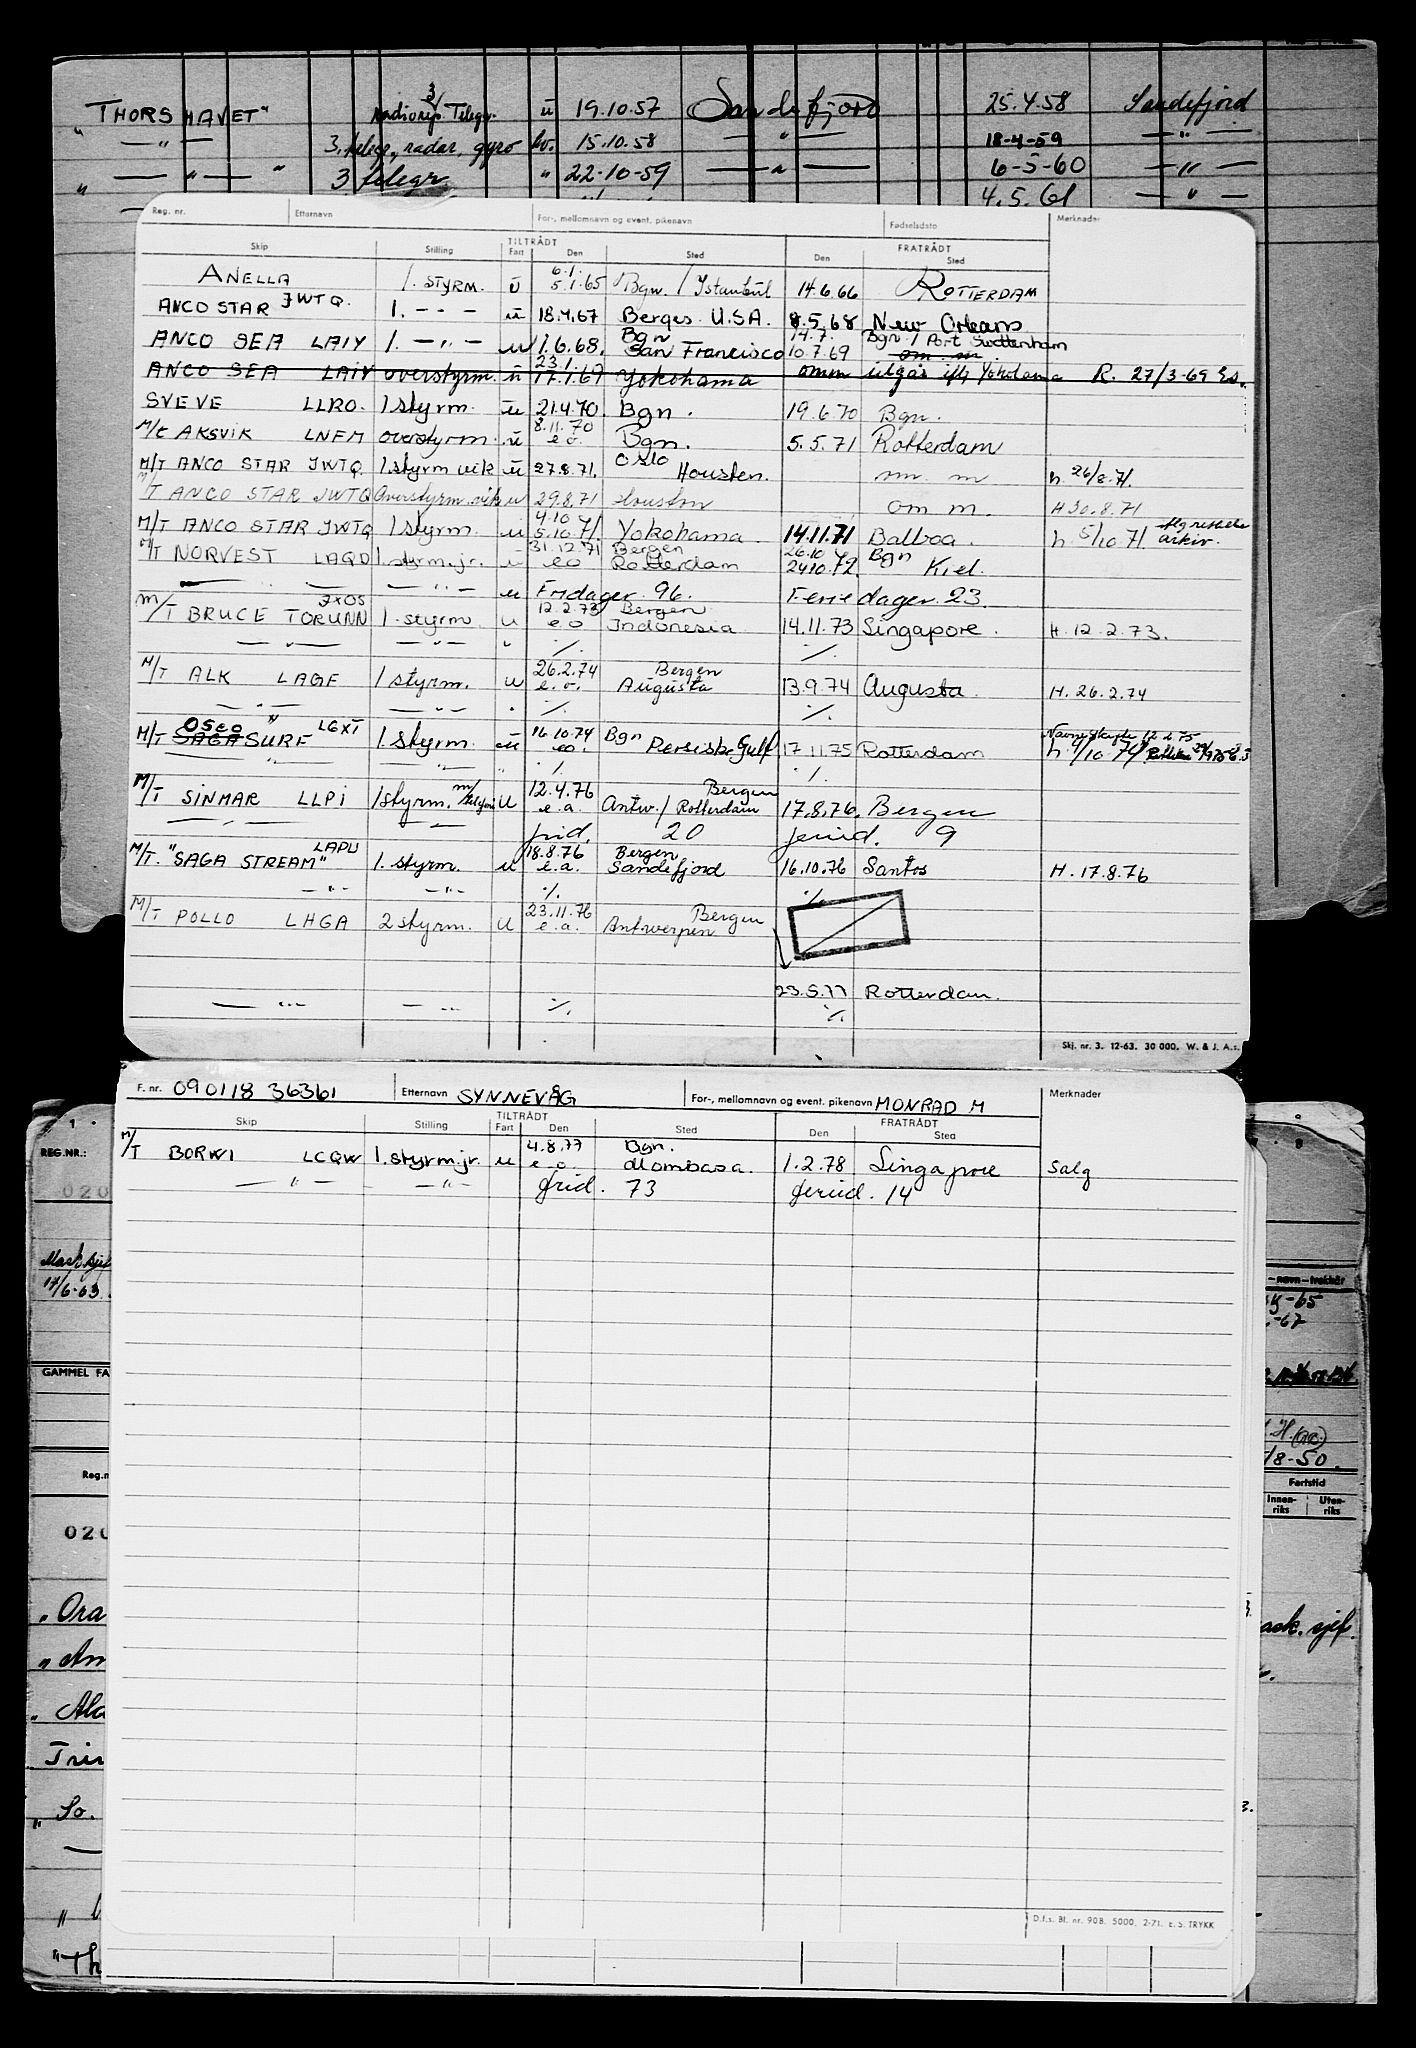 "THORSHAVET" radioinsp. Telegr. 3/ ü 19.10.57 Sandefjord 25.4.58 Sandefjord
— " — 3. telegr., radar, gyro 15.10.58 — " — 18-4-59 — " —
" — " — " 3 telegr " 22-10-59 — " — 6-5-60 — " —
4.5.61 — " —
Reg. nr. Etternavn For-, mellomnavn og event. pikenavn Fødselsdato Merknader
TILTRÅDT FRATRÅDT
Skip Stilling Fart Den Sted Den Sted
ANELLA 1. STYRM. ü 6.1. 5.1.65 Bgn. / Istanbul 14.6.66 ROTTERDAM
ANCO STAR JWTQ. 1. - " - ü 18.4.67 Berges. U.S.A. 8.5.68 New Orleans
ANCO SEA LAIY 1. — " — u 1.6.68. Bgn San Francisco 14.7. 10.7.69 Bgn / Port Swettenham om m.
ANCO SEA LAIY overstyrm. ü 23.1. 17.1.69 Yokohama omm utgår ift Yokohama R. 27/3-69 Es.
SVEVE LLRO. 1 styrm. ü 21.4.70. Bgn. 19.6.70 Bgn.
M/t AKSVIK LNFM overstyrm. ü 8.11.70 e.o. Bgn. 5.5.71 Rotterdam
M/T ANCO STAR JWTQ 1 styrm vik ü 27.8.71. Oslo Housten. m. m h. 26/8.71.
M/T ANCO STAR JWTQ Overstyrm. vik u 29.8.71 Houston om m. H 30.8.71
M/T ANCO STAR JWTQ 1 styrm. u 4.10 5.10.71. Yokohama. 14.11.71 Balboa. h. 5/10 71. arkiv.
M/T NORVEST LAQD 1. styrm. jr. u 31.12.71 e o Bergen Rotterdam 26.10 24.10.72. Bgn Kiel.
— — " — u Fridager. 96. Feriedager. 23.
M/T BRUCE TORUNN JXOS 1. styrm. u 12.2.73 e o Bergen Indonesia 14.11.73 Singapore. H. 12.2.73.
— " — — " — " ./. ./.
M/T ALK LAGF 1 styrm. u 26.2.74 e.o. Bergen Augusta 13.9.74 Augusta. H. 26.2.74
— " — — " — " ./. ./.
M/T OSCO SAGA SURF LGXT 1 styrm. ü 16.10.74 eo. Bgn Persiske Gulf 17.11.75 Rotterdam Navneskifte 12.2.75 h. 9/10.74
" " " ./. ./.
M/T SINMAR LLPI 1 styrm. u 12.4.76 e.a. Bergen Antw. / Rotterdam 17.8.76. Bergen
— " — — " — frid. 20 feried. 9
M/T. "SAGA STREAM" LAPU 1. styrm. u 18.8.76 e.a. Bergen Sandefjord 16.10.76 Santos H. 17.8.76
— " — — " — ./. ./.
M/T POLLO LHGA 2 styrm. u 23.11.76 e.a. Bergen Antwerpen
23.5.77 Rotterdam.
— " — — " — ./. ./.
Skj. nr. 3. 12-63. 30 000. W. & J. A.s.
F. nr. 090118 36361 Etternavn SYNNEVÅG For-, mellomnavn og event. pikenavn MONRAD M Merknader
TILTRÅDT FRATRÅDT
Skip Stilling Fart Den Sted Den Sted
M/T BORWI LCQW 1. styrm. jr. u 4.8.77 e.o. Bgn. Mombasa. 1.2.78 Singapore Salg
— " — — " — frid. 73 feried. 14
D.f.s. Bl. nr. 908. 5000. 2-71. E. S. TRYKK
REG.NR.:
020
17/6-63.
GAMMEL FA
Reg.n
020
" Ora
" Am
" Ala
Trin
" So.
"Th
-navn-trekker
-65
-67
/8-50.
Fartstid
Innen-riks Uten-riks
ask. sjef.